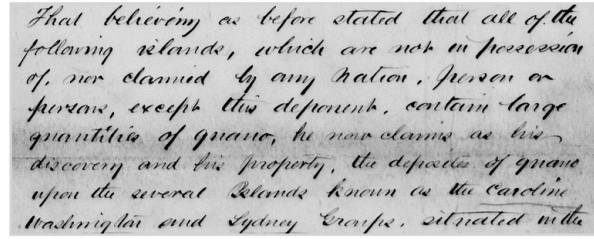 That believing as before stated that all of the
following islands, which are not in possession
of, nor claimed by any Nation, person or
persons, except this deponent, contain large
quantities of guano, he now claims as his
discovery and his property, the deposites of guano
upon the several Islands known as the Caroline
Washington and Sydney Groups, situated in the